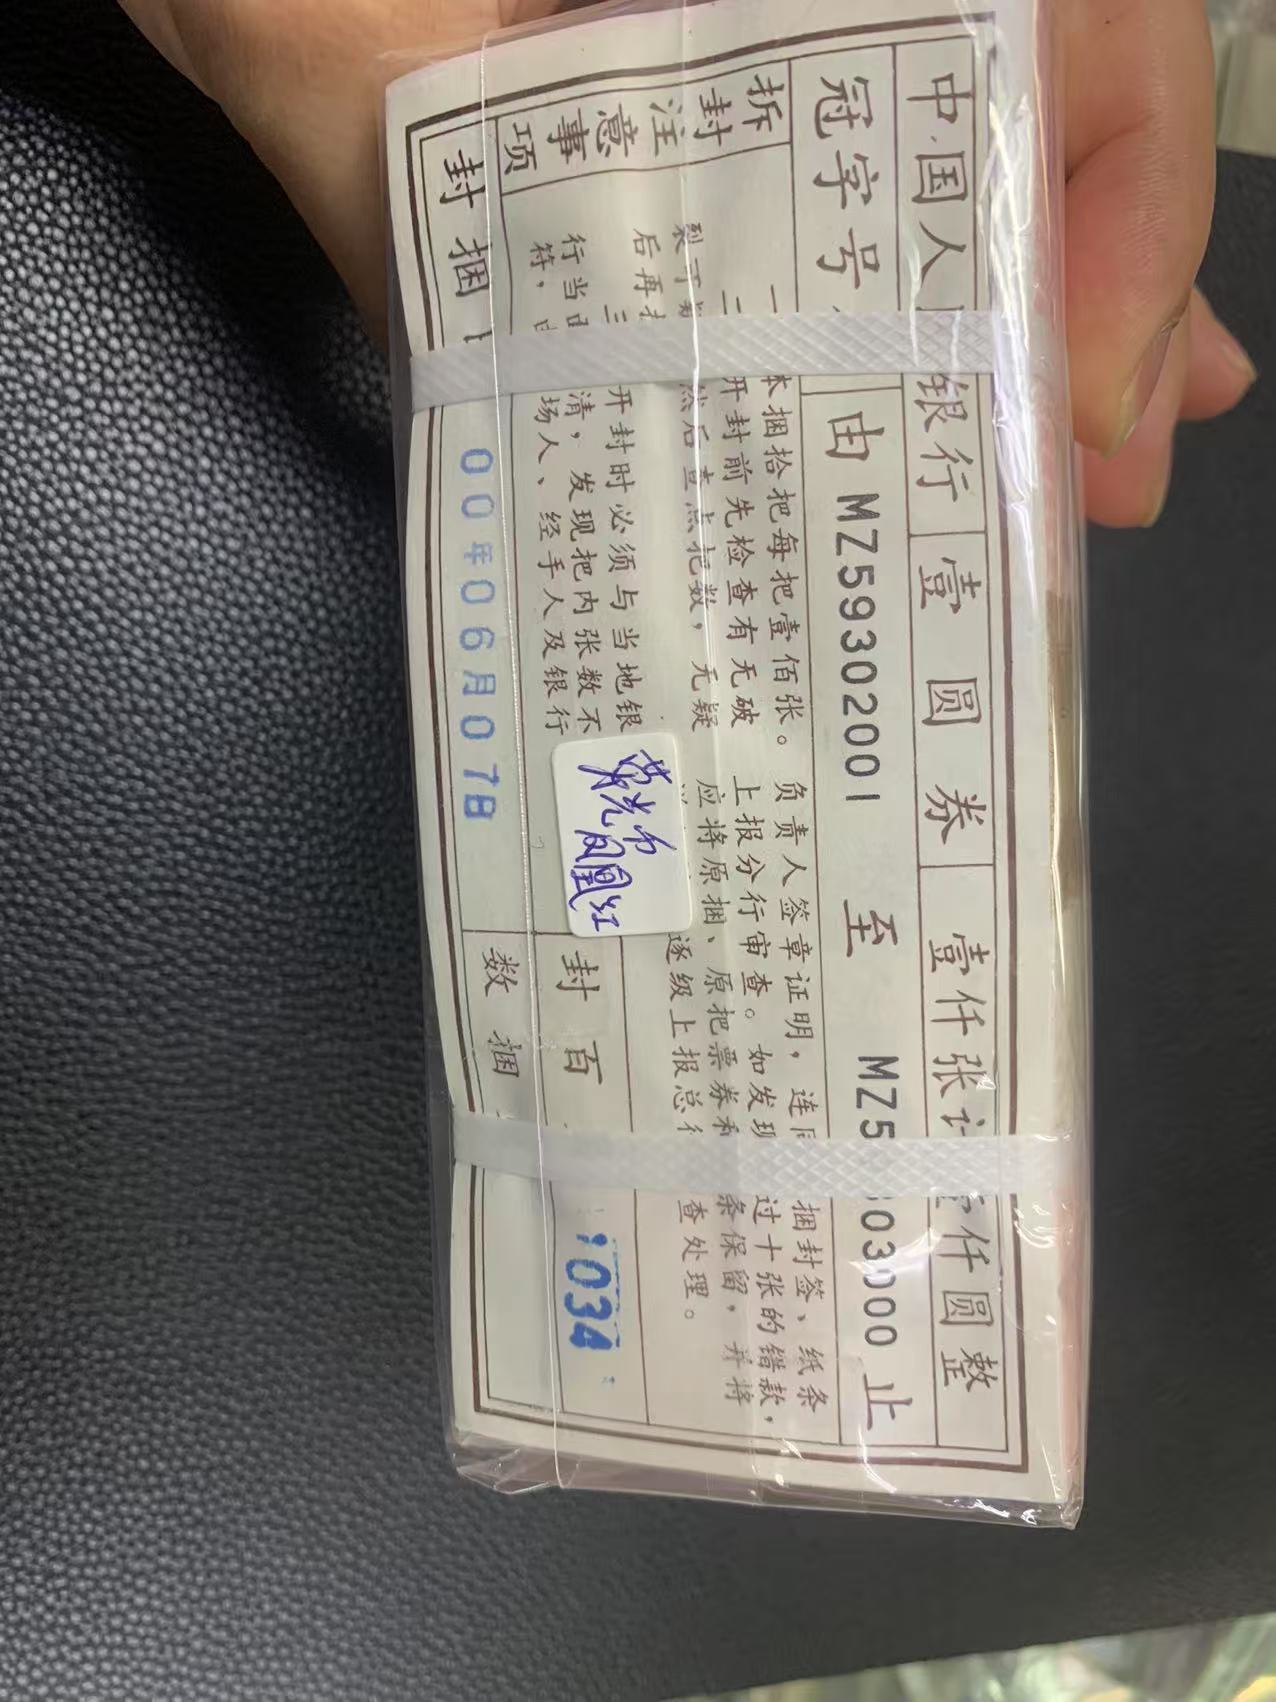 中国人
银行
壹圆券
壹仟张
仟圆整
冠字号
由 MZ59302001 至 MZ5 303000 止
拆封注意事项
一
本捆拾把每把壹佰张。
二
开封前先检查有无破
裂
然后查点把数，无疑
后再
三
开封时必须与当地银
行当
清，发现把内张数不
符，
场人、经手人及银行
负责人签章证明，连
捆封签、纸条
上报分行审查。如发现
过十张的错款，
应将原捆、原把票券和
条保留，并将
逐级上报总
查处理。
荧光币
凤凰红
封百
1034
封捆
00年06月07日
数捆